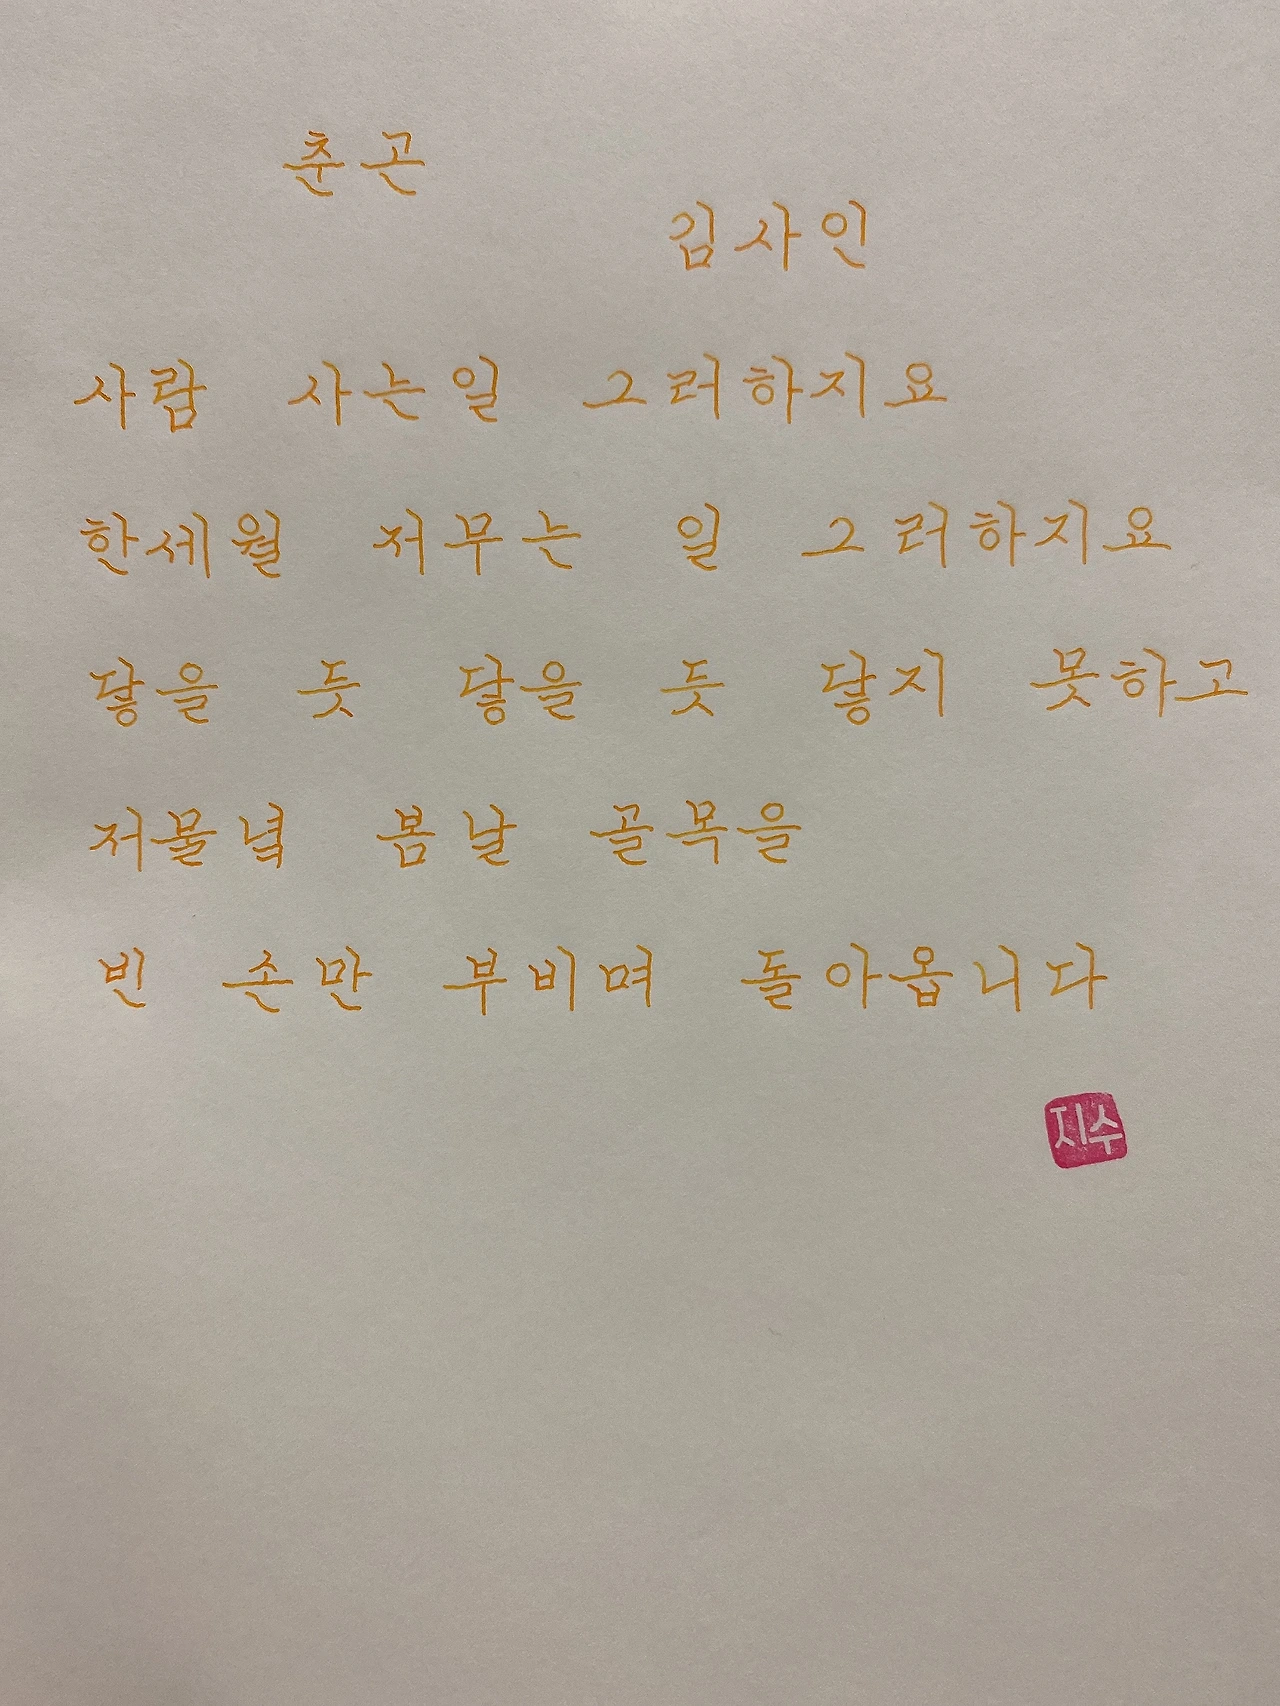 춘곤
김사인
사람 사는일 그러하지요
한세월 저무는 일 그러하지요
닿을 듯 닿을 듯 닿지 못하고
저물녘 봄날 골목을
빈 손만 부비며 돌아옵니다
지수